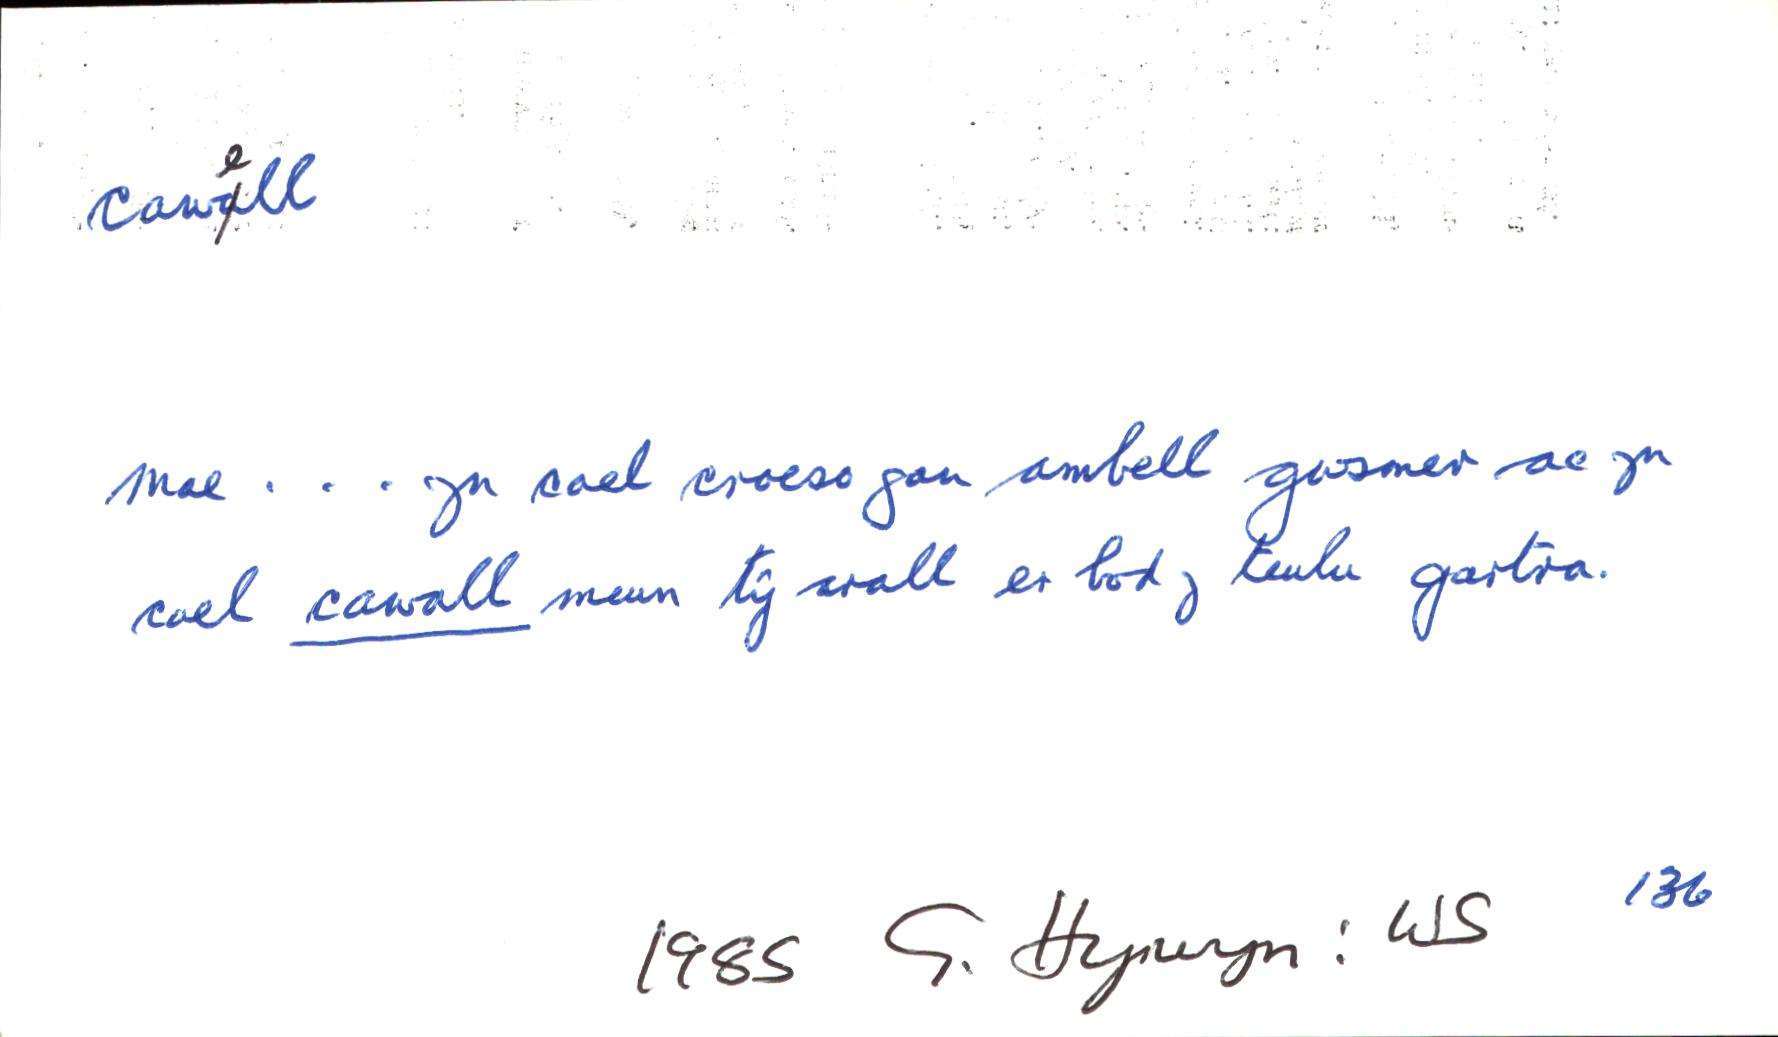 cawell
Mae . . . yn cael croeso gan ambell gwsmer ac yn
cael cawall mewn tŷ arall er bod y teulu gartra.
1985 G. Hywyn: WS 136